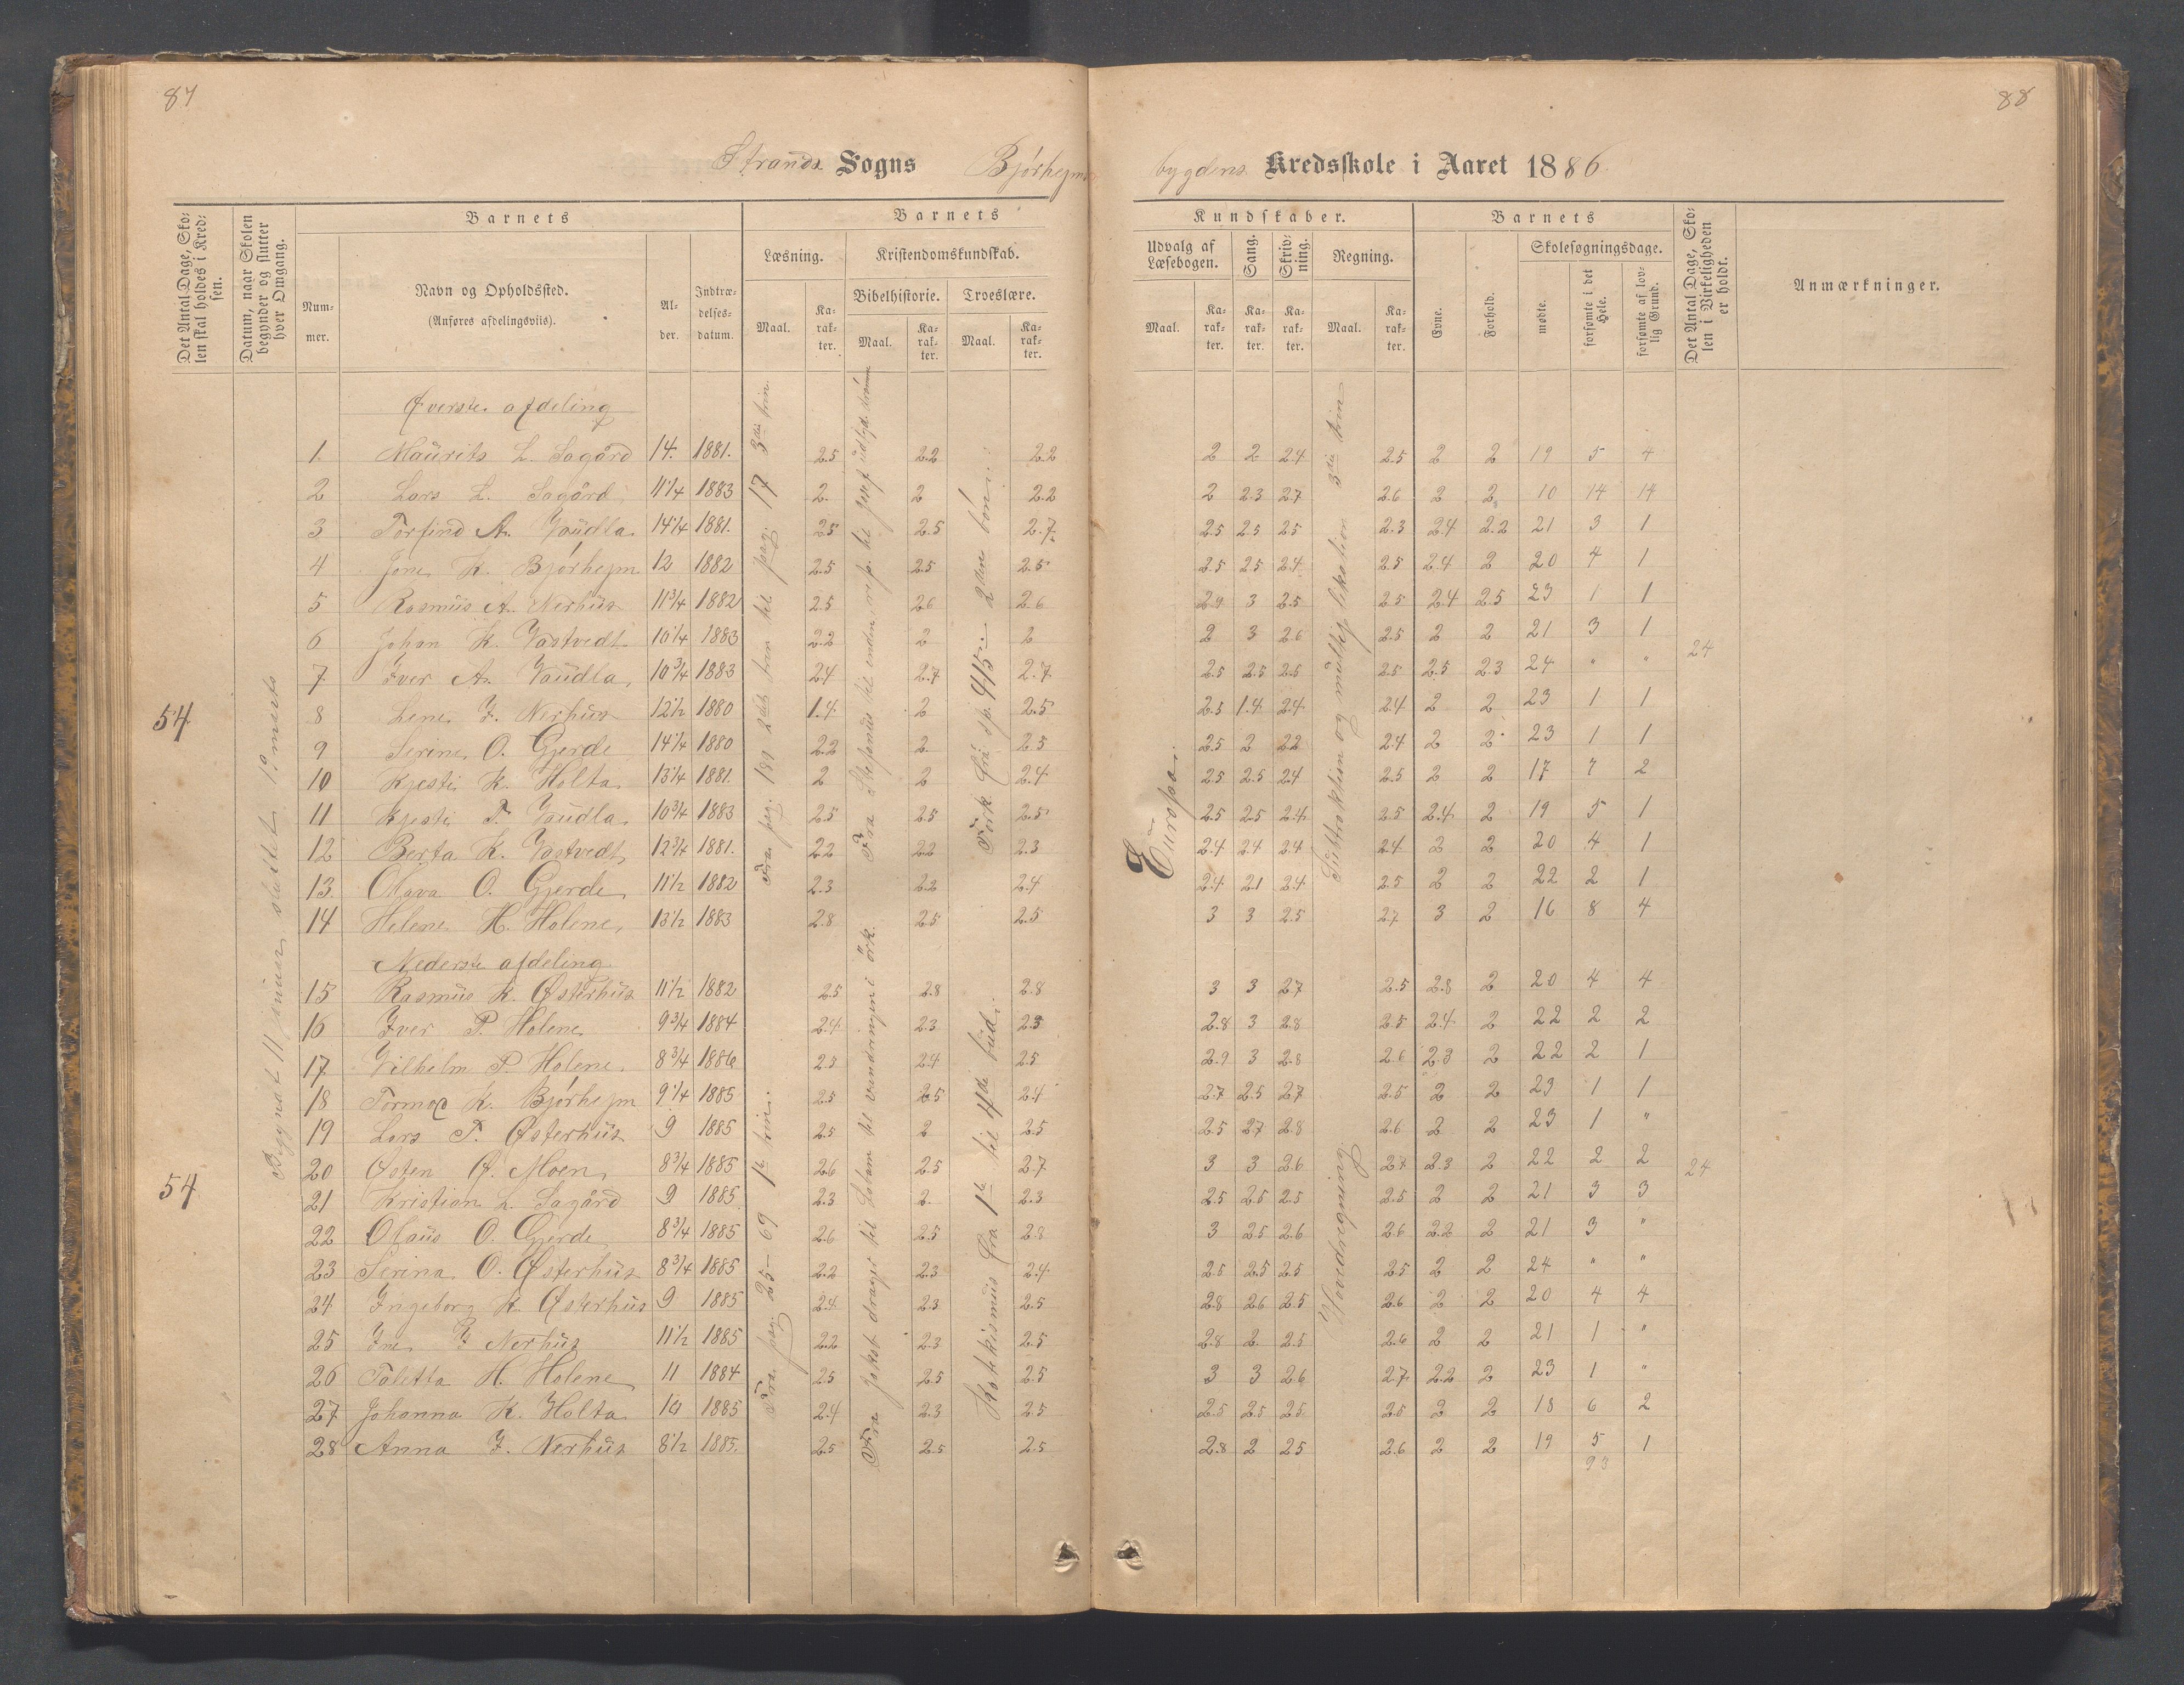 87
88
Strands Sogns Bjørhejms
bygdens Kredsskole i Aaret 1886
Det Antal Dage, Skolen skal holdes i Kredsen.
Datum, naar Skolen begynder og slutter hver Omgang.
Barnets
Nummer.
Navn og Opholdssted.
(Anføres afdelingsviis).
Alder.
Indtrædelsesdatum.
Barnets
Læsning.
Maal.
Karakter.
Kristendomskundskab.
Bibelhistorie.
Maal.
Karakter.
Troeslære.
Maal.
Karakter.
Kundskaber.
Udvalg af Læsebogen.
Maal.
Karakter.
Sang.
Karakter.
Skrivning.
Karakter.
Regning.
Maal.
Karakter.
Barnets
Evne.
Forhold.
Skolesøgningsdage.
mødte.
forsømte i det Hele.
forsømte af lovlig Grund.
Det Antal Dage, Skolen i Virkeligheden er holdt.
Anmærkninger.
Øverste afdeling
1. Maurits L. Sagård 14. 1881. 2.5 2.2 2.2 2 2 2.4 2.5 2 2 19 5 4
2 Lars L. Sagård 11 1/4 1883 2. 2 2.2 2 2.3 2.7 2.6 2 2 10 14 14
3 Torfind A. Vaudla 14 1/4 1881. 2.5 2.5 2.7 2.5 2.5 2.5 2.3 2.4 2.2 21 3 1
4 Jone K. Bjørhejm 12 1882 2.5 2.5 2.5 2.5 2.5 2.4 2.5 2.4 2 20 4 1
5 Rasmus A. Nerhus 11 3/4 1882 2.5 2.6 2.6 2.9 3 2.5 2.5 2.4 2.5 23 1 1
6 Johan K. Vastvedt 10 1/4 1883 2.2 2 2 2 3 2.6 2.5 2 2 21 3 1
7 Iver A. Vaudla 10 3/4 1883 2.4 2.7 2.7 2.5 2.5 2.5 2.5 2.5 2.3 24 " "
24
8 Lene I. Nerhus 12 1/2 1880 1.4 2 2.5 2.5 1.4 2.4 2.4 2 2 23 1 1
54
9 Serine O. Gjerde 14 1/4 1880 2.2 2. 2.5 2.5 2 2.2 2.4 2 2 23 1 1
10 Kjesti K. Holta 13 1/4 1881. 2 2 2.4 2.5 2.5 2.4 2.5 2 2 17 7 2
11 Kjesti T. Vaudla 10 3/4 1883 2.5 2.5 2.5 2.5 2.5 2.4 2.5 2.4 2 19 5 1
12 Berta K. Vastvedt 12 3/4 1881. 2.2 2.2 2.3 2.4 2.4 2.4 2.4 2 2 20 4 1
13. Olava O. Gjerde 11 1/2 1882 2.3 2.2 2.4 2.4 2.1 2.4 2.5 2 2 22 2 1
14 Helene H. Holene 13 1/2 1883 2.8 2.5 2.5 3 3 2.5 2.7 3 2 16 8 4
Nederste afdeling
15 Rasmus K. Østerhus 11 1/2 1882 2.5 2.8 2.8 3 3 2.7 2.5 2.8 2 20 4 4
16 Iver P. Holene 9 3/4 1884 2.4 2.3 2.3 2.8 3 2.8 2.5 2.4 2 22 2 2
17 Vilhelm P. Holene 8 3/4 1886 2.5 2.4 2.5 2.9 3 2.8 2.6 2.3 2 22 2 1
18 Tormod K. Bjørhejm 9 1/4 1885 2.5 2.5 2.4 2.7 2.5 2.7 2.5 2 2 23 1 1
19 Lars T. Østerhus 9 1885 2.5 2 2.5 2.5 2.7 2.8 2.6 2 2 23 1 "
20 Østen Ø. Moen 8 3/4 1885 2.6 2.5 2.7 3 3 2.6 2.7 2.3 2 22 2 2
24
54
21 Kristian L. Sagård 9 1885 2.3 2. 2.3 2.5 2.5 2.5 2.5 2 2 21 3 3
22 Olaus O. Gjerde 8 3/4 1885 2.6 2.5 2.8 3 2.5 2.6 2.6 2.2 2 21 3 "
23 Serina O. Østerhus 8 3/4 1885 2.2 2.3 2.4 2.5 2.5 2.5 2.5 2 2 24 " "
24 Ingeborg K. Østerhus 9 1885 2.4 2.3 2.5 2.8 2.6 2.5 2.6 2 2 20 4 4
25 Ine I Nerhus 11 1/2 1885 2.2 2.3 2.5 2.8 2 2.5 2.6 2 2 21 1 "
26 Taletta H. Holene 11 1884 2.5 2.5 2.5 3 3 2.6 2.7 2.2 2 23 1 "
27 Johanna K. Holta 10 1885 2.4 2.3 2.5 2.5 2.5 2.5 2.5 2 2 18 6 2
28 Anna I. Nerhus 8 1/2 1885. 2.5 2.5 2.5 2.8 2 2.5 2.6 2 2 19 5 1
93
Begyndt 11 januar sluttet 19 marts
Fra pag. 181 2det trin til pag. 17 3die trin.
Fra pag. 25 - 69 1te trin.
Fra Jakob drager til Laban til vandringen i örk.
Fork. fra sp. 415 - 2den bøn
Katekismus fra 1te til 4de bud.
Europa.
Subtraktion og multiplikation 3die trin
Hovedregning